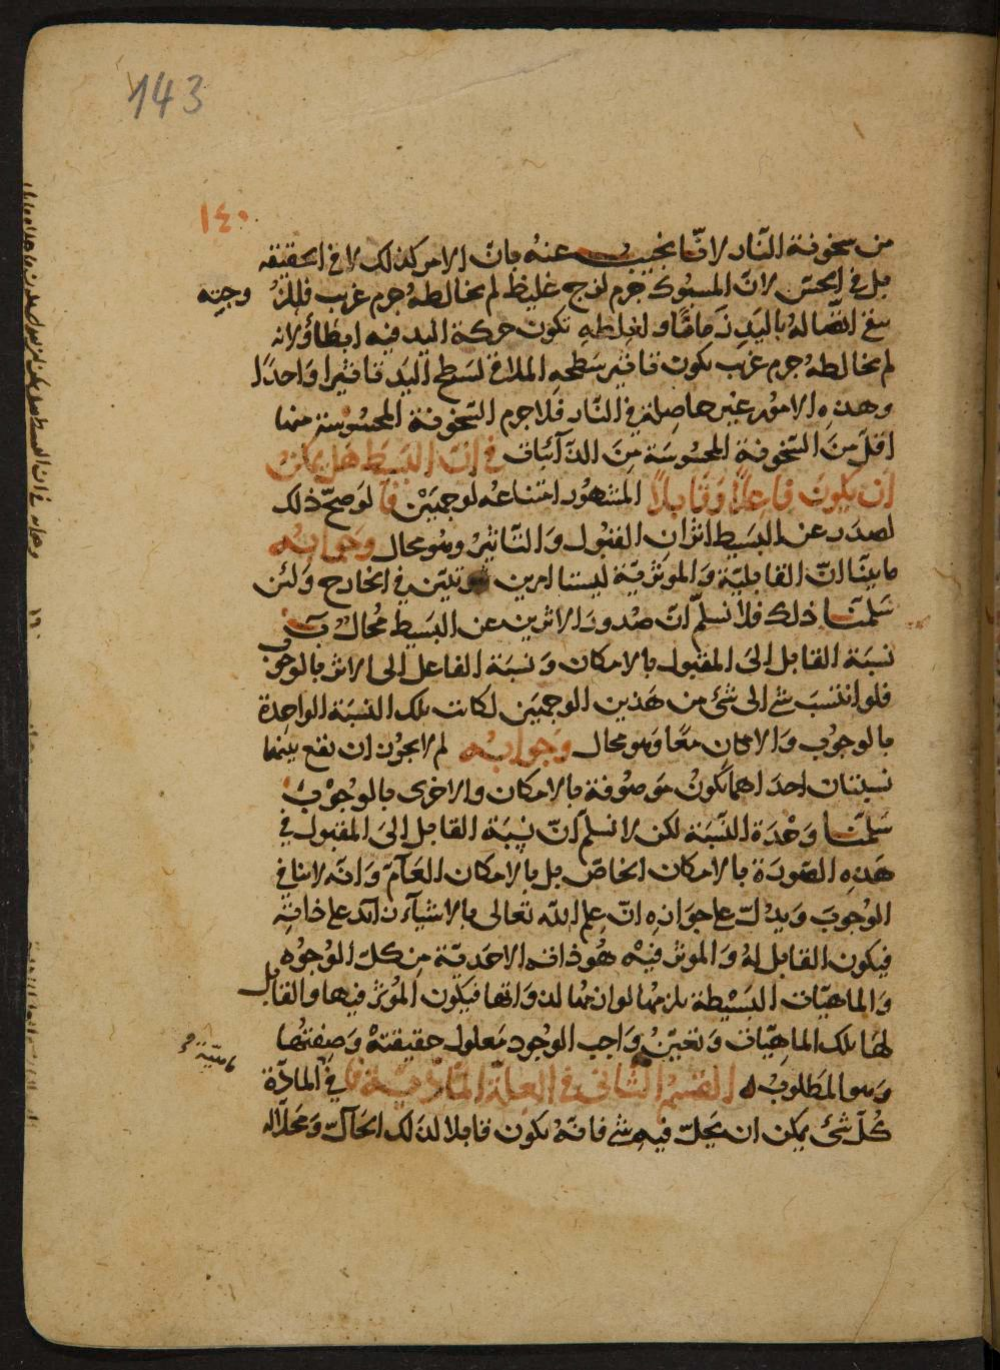 143
١٤٠
من سخونة النّار لانّا نجيب عنهُ بانّ الامر كذلك لا فى الحقيقة
بل فى الحسّ لانّ المسبُوك جرم لزج غليظ لم يخالطهُ جرم غريب فللزُ وجته
سغ اتّصالهُ باليَد زمامًا ولغِلظهِ تكون حركة اليد فيه ابطأ ولانه
لم يخالطهُ جرم غريب يكون تاثير سَطحهِ الملاقى لسَطح اليَد تاثيرا وَاحدًا
وهذهِ الامُور غير حاصِلة فى النّار فلا جرم السّخونة المحسُوسة منها
اقلّ منَ السّخونة المحسُوسَة مِنَ الذّائبات فى انّ البَسيط هَل يمكن
ان يكونَ فاعِلاً وقابلاً المشهُور امتناعه لوجهيَن ا لوَ صحّ ذلك
لصدَر عن البسَيط اثران القبُول وَالتّاثيرُ وهو محال وجوابه
ما بينّا انّ القابليّة وَالموثّريّة ليستا امرين ثبوتيّين فى الخارج وَلئن
سَلّمنَا ذلك فلا نسلّم انّ صُدورَ الاثرين عن البَسيط مُحال ب
نسبَة القابل الىَ المقبُول بالامكان وَنسبَة الفاعل الى الاثر بالوجوب
فلو انتسبَ شئ الى شئ من هَذين الوجهيَن لكانت تلك النسبَة الواحِدة
بالوجوُب وَالامكان معًا وَهو محال وَجوابه لم لا يجوُز ان تقع بينهما
نسبتان احدَاهما تكونُ مَوصُوفة بالامكان والاخرى بالوجُوب
سَلّمنَا وَحْدَة النّسَبة لكن لا نسلّم انّ نسِبَة القابل الىَ المقبول فى
هَذه الصّورَة بالامكان الخاصّ بل بالامكان العَامّ وَانّه لا ينافى
الوُجوبَ وَيدُلّ على جوَازهِ انّ علِم اللّه تعالى بالاشيآء زائد على ذاتِه
فيكون القابل لهُ وَالموثر فيْه هُو ذاته الاحَديّة مِن كلّ الوُجوُه
وَالماهيّات البَسيْطة يلزمُهَا لوازمُهَا لذوَاتها فيكون المُوثر فيها والقابل
لهَا تلك الماهِيّات وَتعيّنُ وَاجب الوجُود مَعلول حقيقتهْ وَصِفتُها
وَهو المَطلوُب القسْم الثّانى فى العِلّة المَادّيّة ا فى المادّة
كُلّ شئ يمكن ان يَحلّ فيهِ شئ فانّهُ يكون قابلا لذلك الحَالّ وَمَحلاّ له